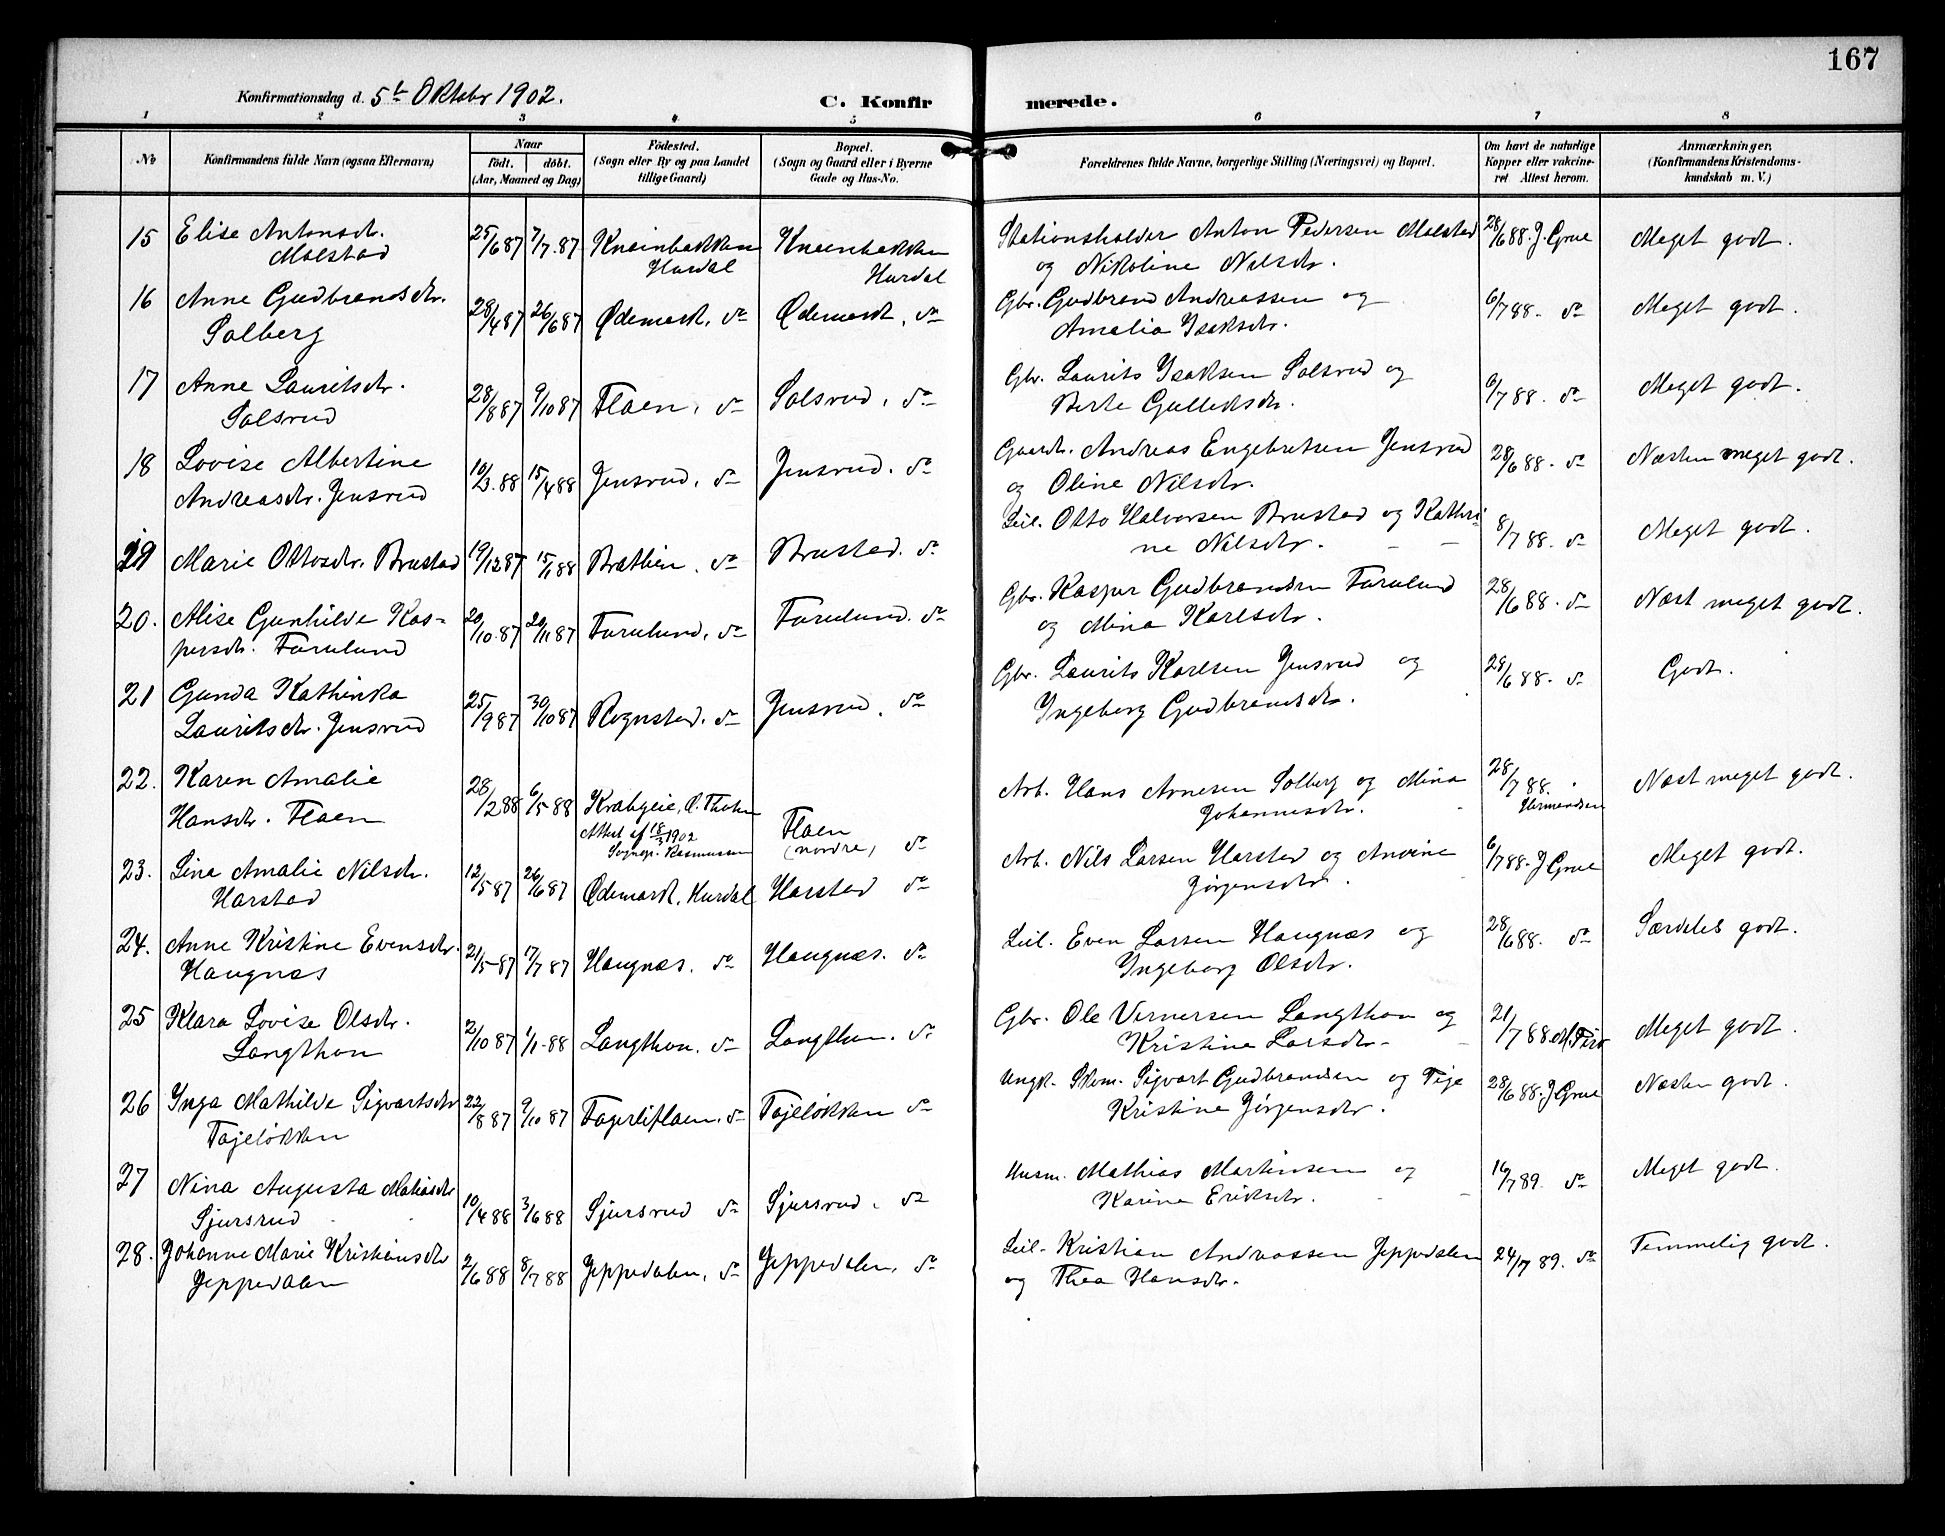 167
Konfirmationsdag d. 5te Oktober 1902.
C. Konfirmerede.
1 2 3 4 5 6 7 8
No
Konfirmandens fulde Navn (ogsaa Efternavn)
Naar
født. døbt.
(Aar, Maaned og Dag)
Fødested.
(Sogn eller By og paa Landet
tillige Gaard)
Bopæl.
(Sogn og Gaard eller i Byerne
Gade og Hus-No.
Forældrenes fulde Navne, borgerlige Stilling (Næringsvei) og Bopæl.
Om havt de naturlige
Kopper eller vakcine-
ret Attest herom.
Anmærkninger.
(Konfirmandens Kristendoms-
kundskab m. V.)
15 Elise Antonsdr. 25/6 87 7/7.87 Kneinbakken Kneenbakken Stationsholder Anton Pedersen Molstad 28/6 88. J. Grue Meget godt.
Molstad Hurdal Hurdal og Nikoline Nilsdr.
16 Anne Gudbrandsdr. 28/4 87 26/6 87 Ødemark, do Ødemark, do Gbr. Gudbrand Andreassen og 6/7 88. do Meget godt.
Solberg Amalia Isaksdr.
17 Anne Lauritsdr. 28/8 87 9/10 87 Flaen, do Solsrud, do Gbr. Laurits Isaksen Solsrud og 6/7 88. do Meget godt.
Solsrud Berte Gulliksdr.
18 Lovise Albertine 10/3.88 15/4 88 Jensrud, do Jensrud. do Gaardr. Andreas Engebretsen Jensrud 28/6 88. do Næsten meget godt.
Andreasdr. Jensrud og Oline Nilsdr.
19 Marie Ottosdr. Brustad 19/12 87 15/1 88 Bræthen. do Brustad. do Leil. Otto Halvorsen Brustad og Kathri- 8/7 88. do Meget godt.
ne Nilsdr.
20. Alise Gunhilde Kas- 20/10.87 20/11 87 Furulund, do Furulund. do Gbr. Kasper Gudbrandsen Furulund 28/6 88. do Næst meget godt.
persdr. Furulund og Mina Karlsdr.
21 Gunda Kathinka 25/9 87 30/10 87 Rognstad. do Jensrud. do Gbr. Laurits Karlsen Jensrud og 29/6 88. do Godt.
Lauritsdr. Jensrud Ingeborg Gudbrandsdr.
22. Karen Amalie 28/2 88 6/5 88 Krabyeie, Ø. Thoten Flaen Arb. Hans Arnesen Solberg og Mina 28/7 88. Næst meget godt.
Hansdr. Flaen Attest af 18/3 1902 (nordre) do Johannesdr. Hermandsen
Sognepr. Rasmussen
23. Lina Amalie Nilsdr. 12/5 87 26/6 87 Ødemark, Hurdal Harstad do Arb. Nils Larsen Harstad og Anvine 6/7 88. J Grue Meget godt.
Harstad Jørgensdr.
24. Anne Kristine Evensdr. 21/5-87 17/7 87 Haugnæs. do Haugnæs. do Leil. Even Larsen Haugnæs og 28/6 88. do Særdeles godt.
Haugnæs Ingeborg Olsdr.
25 Klara Lovise Olsdr. 2/10 87 1/1-88 Langthon. do Langthon. do Gbr. Ole Vernersen Langthon og 21/7 88 Meget godt.
Langthon Kristine Larsdr.
26 Inga Mathilde Sigvartsdr 22/8 87 9/10 87 Fagerliflaen. do Tajeløkken do Ungk. Skom. Sigvart Gudbrandsen og Pige 28/6 88. J Grue Næsten godt.
Tajeløkken Kristine Jørgensdr.
27 Nina Augusta Matiasdr 10/4 88 3/6 88 Sjursrud do Sjursrud. do Husm. Mathias Martinsen og 16/7 89. do Meget godt.
Sjursrud Karine Eriksdr.
28. Johanne Marie Kristiansdr 2/6 88 8/7 88 Jeppedalen, do Jeppedalen, do Leil. Kristian Andreassen Jeppedalen 24/7 89. do Temmelig godt.
Jeppedalen og Thea Hansdr.